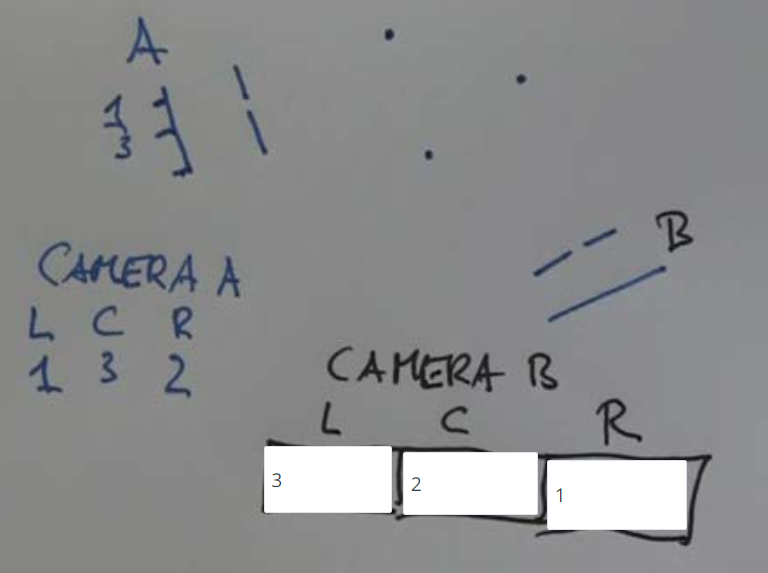 A
1
3
B
CAMERA A
L C R
1 3 2
CAMERA B
L C R
3 2 1